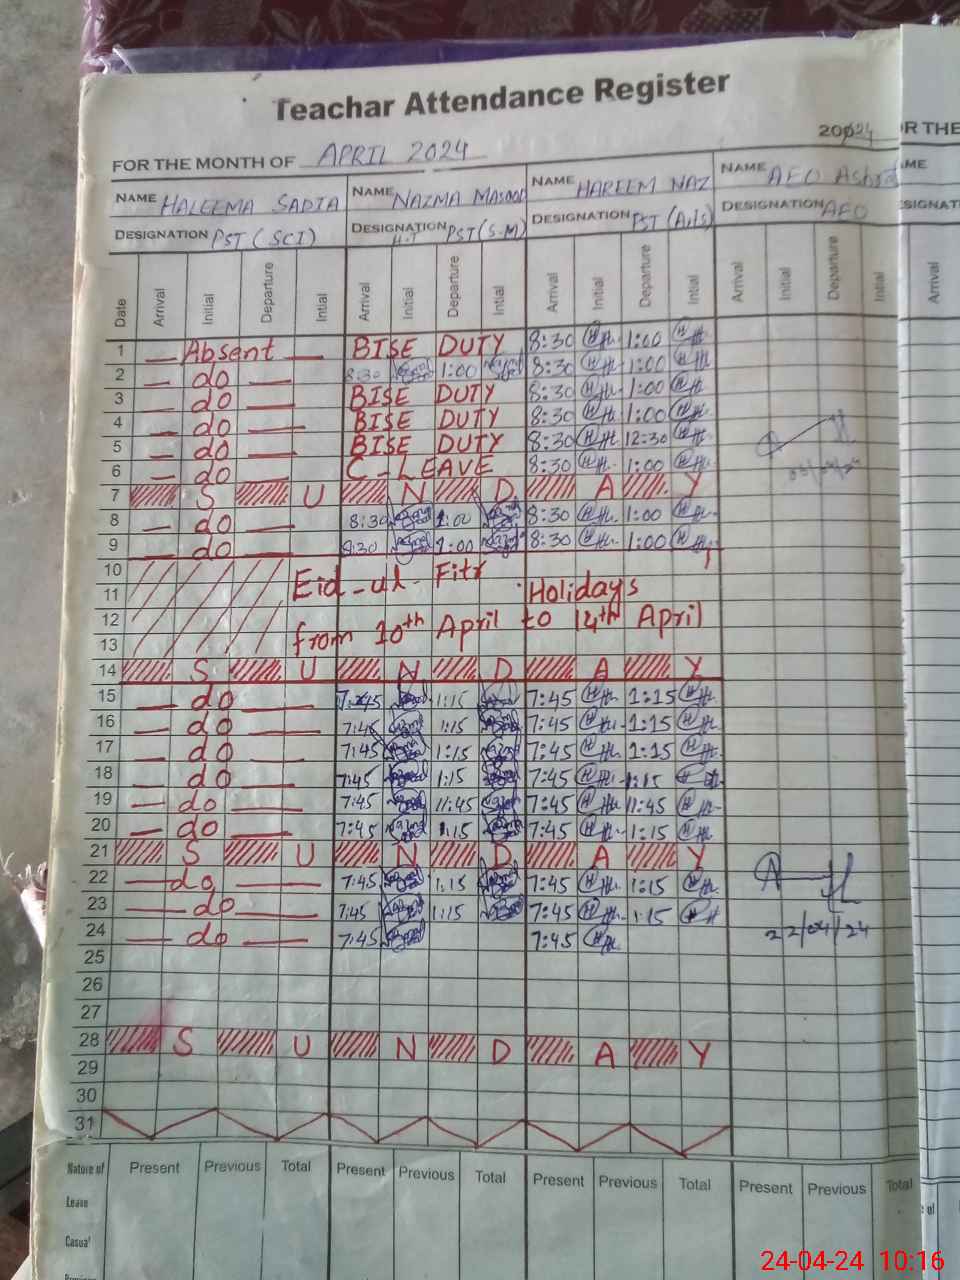 Teachar Attendance Register
2024
FOR THE MONTH OF APRIL 2024
NAME HALEEMA SADIA NAME NAZMA MASOOD NAME HAREEM NAZ NAME AEO Ashra
DESIGNATION PST (SCI) DESIGNATION H.T PST(S-M) DESIGNATION PST (Arts) DESIGNATION AEO
Date Arrival Initial Departure Intial Arrival Initial Departure Intial Arrival Initial Departure Intial Arrival Initial Departure Initial
1 — Absent — BISE DUTY 8:30 1:00
2 — do — 8:30 1:00 8:30 1:00
3 — do — BISE DUTY 8:30 1:00
4 — do — BISE DUTY 8:30 1:00
5 — do — BISE DUTY 8:30 12:30
6 — do — C-LEAVE 8:30 1:00
7 S U N D A Y
8 — do — 8:30 1:00 8:30 1:00
9 — do — 8:30 1:00 8:30 1:00
10
11 Eid-ul-Fitr Holidays
12
13 from 10th April to 14th April
14 S U N D A Y
15 — do — 7:45 1:15 7:45 1:15
16 — do — 7:45 1:15 7:45 1:15
17 — do — 7:45 1:15 7:45 1:15
18 — do — 7:45 1:15 7:45 1:15
19 — do — 7:45 11:45 7:45 11:45
20 — do — 7:45 1:15 7:45 1:15
21 S U N D A Y
22 — do — 7:45 1:15 7:45 1:15
23 — do — 7:45 1:15 7:45 1:15
24 — do — 7:45 7:45
22/04/24
25
26
27
28 S U N D A Y
29
30
31
Nature of Present Previous Total Present Previous Total Present Previous Total Present Previous Total
Leave
Casual
24-04-24 10:16